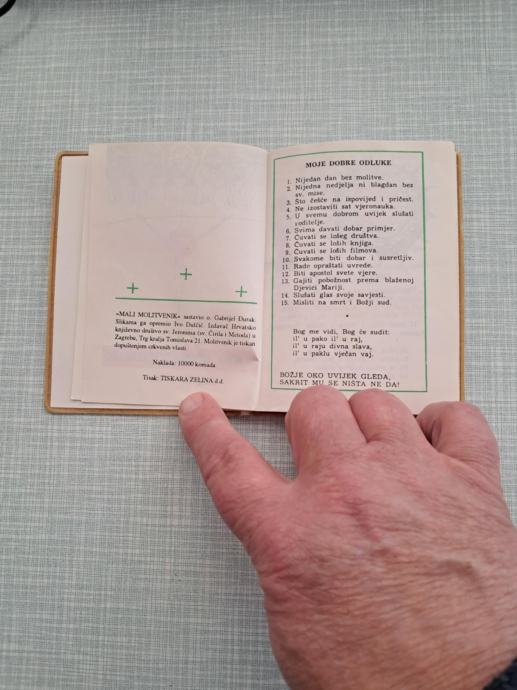 »MALI MOLITVENIK« sastavio o. Gabrijel Đurak.
Slikama ga opremio Ivo Dulčić. Izdavač Hrvatsko
književno društvo sv. Jeronima (sv. Ćirila i Metoda) u
Zagrebu, Trg kralja Tomislava 21. Molitvenik je tiskan
dopuštenjem crkvenih vlasti.
Naklada: 10000 komada
Tisak: TISKARA ZELINA d.d.
MOJE DOBRE ODLUKE
1. Nijedan dan bez molitve.
2. Nijedna nedjelja ni blagdan bez
sv. mise.
3. Što češće na ispovijed i pričest.
4. Ne izostaviti sat vjeronauka.
5. U svemu dobrom uvijek slušati
roditelje.
6. Svima davati dobar primjer.
7. Čuvati se lošeg društva.
8. Čuvati se loših knjiga.
9. Čuvati se loših filmova.
10. Svakome biti dobar i susretljiv.
11. Rado opraštati uvrede.
12. Biti apostol svete vjere.
13. Gajiti pobožnost prema blaženoj
Djevici Mariji.
14. Slušati glas svoje savjesti.
15. Misliti na smrt i Božji sud.
Bog me vidi, Bog će sudit:
il' u pako il' u raj,
il' u raju divna slava,
il' u paklu vječan vaj.
BOŽJE OKO UVIJEK GLEDA,
SAKRIT MU SE NIŠTA NE DA!